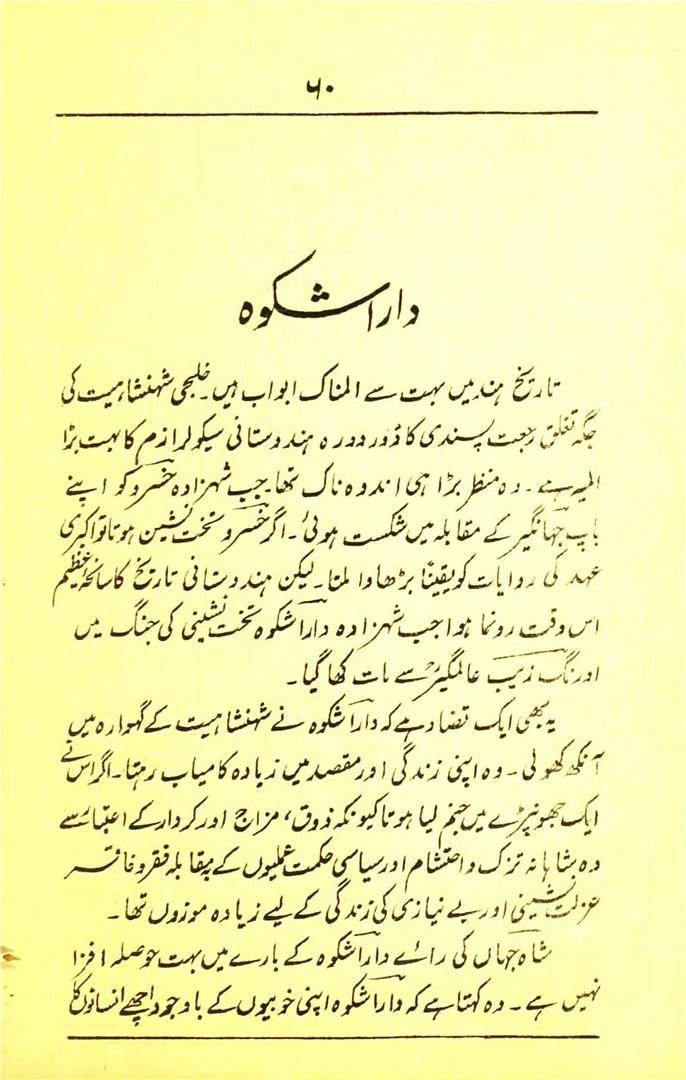 ۶۰
دارا شکوہ
تاریخ ہند میں بہت سے المناک ابواب ہیں۔ خلجی شہنشاہیت کی
جگہ تغلق رجعت پسندی کا دَور دورہ ہندوستانی سیکولرازم کا بہت بڑا
المیہ ہے۔ وہ منظر بڑا ہی اندوہ ناک تھا۔ جب شہزادہ خسرو کو اپنے
باپ جہانگیر کے مقابلہ میں شکست ہوئی۔ اگر خسرو تخت نشین ہوتا تو اکبری
عہد کی روایات کو یقیناً بڑھاوا ملتا۔ لیکن ہندوستانی تاریخ کا سانحۂ عظیم
اس وقت رونما ہوا جب شہزادہ دارا شکوہ تخت نشینی کی جنگ میں
اورنگ زیب عالمگیرؒ سے مات کھا گیا۔
یہ بھی ایک تضاد ہے کہ دارا شکوہ نے شہنشاہیت کے گہوارہ میں
آنکھ کھولی۔ وہ اپنی زندگی اور مقصد میں زیادہ کامیاب رہتا۔ اگر اس نے
ایک جھونپڑے میں جنم لیا ہوتا کیونکہ ذوق، مزاج اور کردار کے اعتبار سے
وہ شاہانہ تزک و احتشام اور سیاسی حکمت عملیوں کے بمقابلہ فقر و فاقہ
عزلت نشینی اور بے نیازی کی زندگی کے لیے زیادہ موزوں تھا۔
شاہ جہاں کی رائے دارا شکوہ کے بارے میں بہت حوصلہ افزا
نہیں ہے۔ وہ کہتا ہے کہ دارا شکوہ اپنی خوبیوں کے باوجود اچھے انسانوں کا